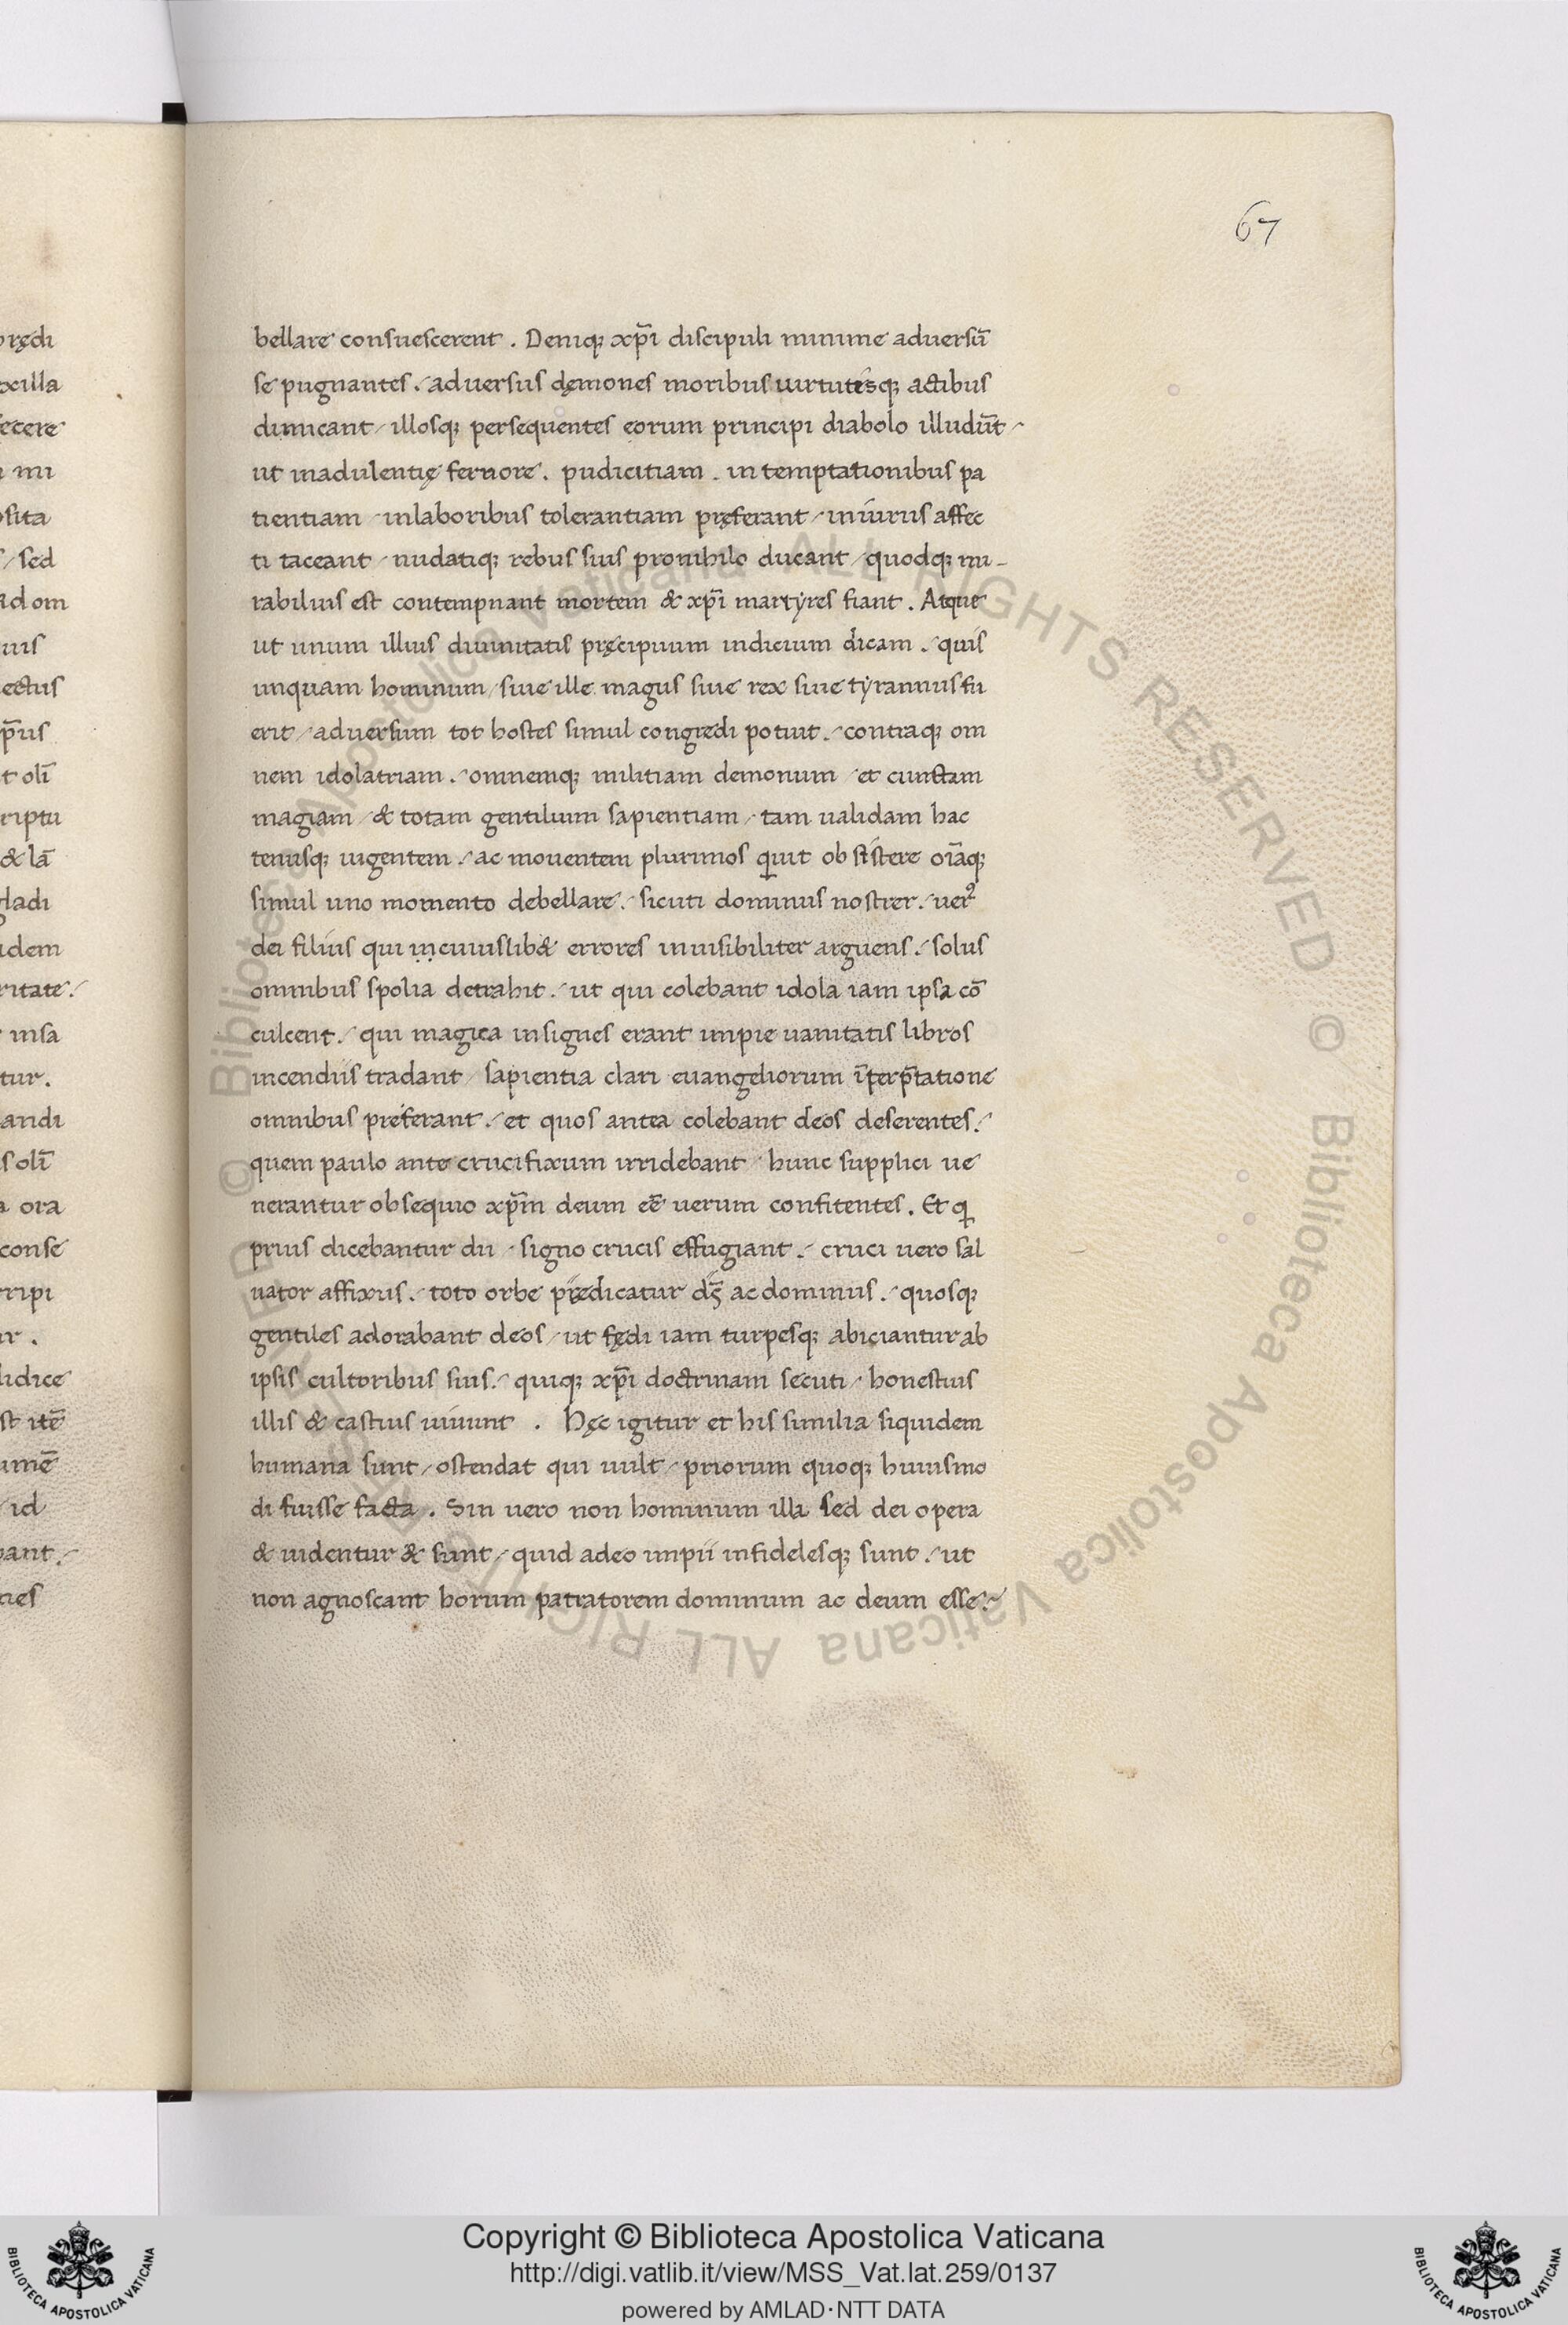 67
bellare consuescerent . Deniq; xp̄i discipuli minime aduersū
se pugnantes . aduersus dęmones moribus uirtutisq; actibus
dimicant / illosq; persequentes eorum principi diabolo illudūt /
ut in adulentię feruore . pudicitiam . in temptationibus pa
tientiam / in laboribus tolerantiam pręferant / iniuriis affec
ti taceant / nudatiq; rebus suis pro nihilo ducant / quodq; mi-
rabilius est contempnant mortem & xp̄i martyres fiant . Atque
ut unum illius diuinitatis pręcipuum indicium dicam ./ quis
unquam hominum / siue ille magus siue rex siue tyrannus fu
erit / aduersum tot hostes simul congredi potuit ./ contraq; om
nem idolatriam ./ omnemq; militiam demonum / et cunctam
magiam / & totam gentilium sapientiam / tam ualidam hac
tenusq; uigentem ./ ac mouentem plurimos quit obsistere oīaq;
simul uno momento debellare ./ sicuti dominus noster ./ uerꝰ
dei filius qui in cuiuslib& errores inuisibiliter arguens ./ solus
omnibus spolia detrahit ./ ut qui colebant idola iam ipsa cō
culcent ./ qui magica insignes erant impie uanitatis libros
incendiis tradant / sapientia clari euangeliorum īterp̄tatione
omnibus preferant ./ et quos antea colebant deos deserentes ./
quem paulo ante crucifixum irridebant / hunc supplici ue
nerantur obsequio xp̄m deum eē uerum confitentes . Et q
prius dicebantur dii / signo crucis effugiant ./ cruci uero sal
uator affixus ./ toto orbe predicatur ds̄ ac dominus ./ quosq;
gentiles adorabant deos / ut fędi iam turpesq; abiciantur ab
ipsis cultoribus suis ./ quiq; xp̄i doctrinam secuti / honestius
illis & castius uiuunt . Hęc igitur et his similia siquidem
humana sunt / ostendat qui uult / priorum quoq; huiusmo
di fuisse facta . Sin uero non hominum illa sed dei opera
& uidentur & sunt / quid adeo impii infidelesq; sunt ./ ut
non agnoscant horum patratorem dominum ac deum esse ./
rędi
xilla
ecere
mi
sita
/ sed
ad om
uis
ectus
p̄us
t olī
riptu
& lā
gladi
idem
ritate ./
insa
tur .
andi
s olī
ora
conse
rripi
ur .
lidice
st itē
umē
/ id
bant ./
nes
© Biblioteca Apostolica Vaticana ALL RIGHTS RESERVED © Biblioteca Apostolica Vaticana ALL RIGHTS RESERVED
Copyright © Biblioteca Apostolica Vaticana
http://digi.vatlib.it/view/MSS_Vat.lat.259/0137
powered by AMLAD·NTT DATA
BIBLIOTECA APOSTOLICA VATICANA
BIBLIOTECA APOSTOLICA VATICANA